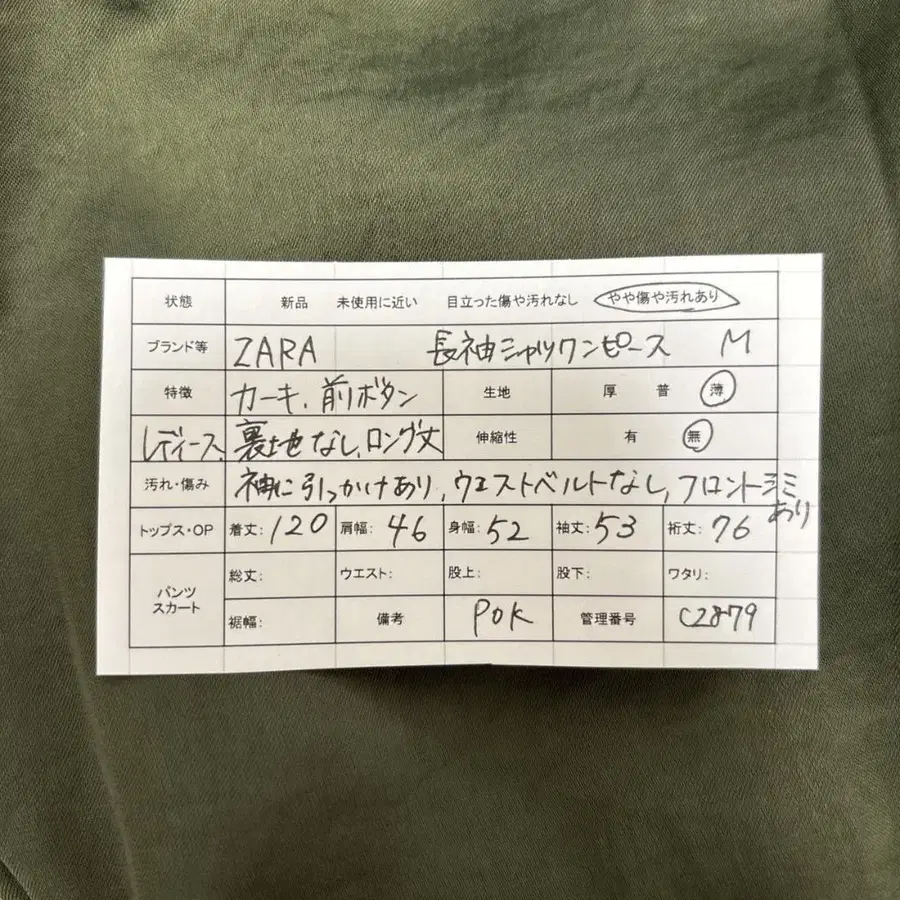 状態 新品 未使用に近い 目立った傷や汚れなし やや傷や汚れあり
ブランド等 ZARA 長袖シャツワンピース M
特徴 カーキ、前ボタン 生地 厚 普 薄
レディース、裏地なし、ロング丈 伸縮性 有 無
汚れ・傷み 袖に引っかけあり、ウエストベルトなし、フロントシミあり
トップス・OP 着丈:120 肩幅:46 身幅:52 袖丈:53 裄丈:76
パンツ スカート 総丈: ウエスト: 股上: 股下: ワタリ:
裾幅: 備考 POK 管理番号 C2879